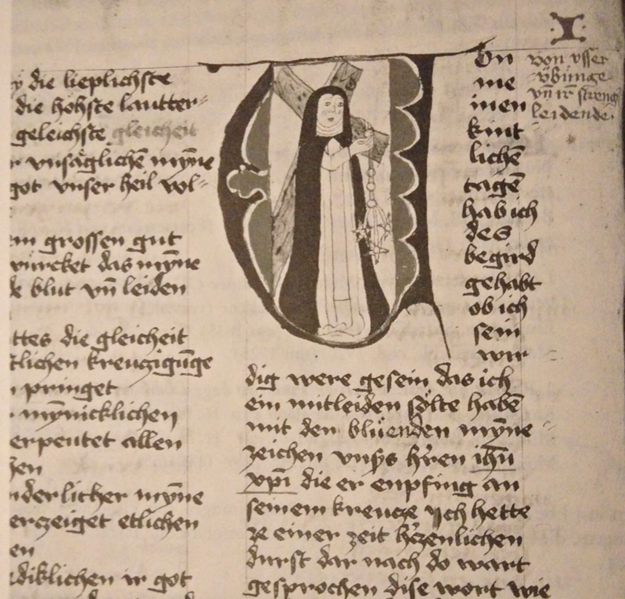 y die lieplichste
die hohste lautter⸗
geleichste gleicheit
r vnsäglichē mȳne
got vnser heil vol⸗
m grossen gut
würcket das mȳne
blut vn̄ leiden
ttes die gleicheit
tlichen kreuzigūge
pringet
mȳnicklichen
erpeutet allen
hen
nderlicher mȳne
erzeiget etlichen
en
diklichen ir got
I
von vsser
vbunge
vn̄ ir streng
leidende.
On
me
inen
kint
lichē
tagē
hab ich
des
begird
gehabt
ob ich
sein
wir
dig were gesein das ich
ein mitleiden sölte habē
mit den blüenden mȳne⸗
zeichen vnsers h'ren ih̄u
xp̄i die er enpfing an
seinem kreucze Ich hette
ze einer zeit h'zenlichen
durst dar nach do wart
gesprochen dise wort wie